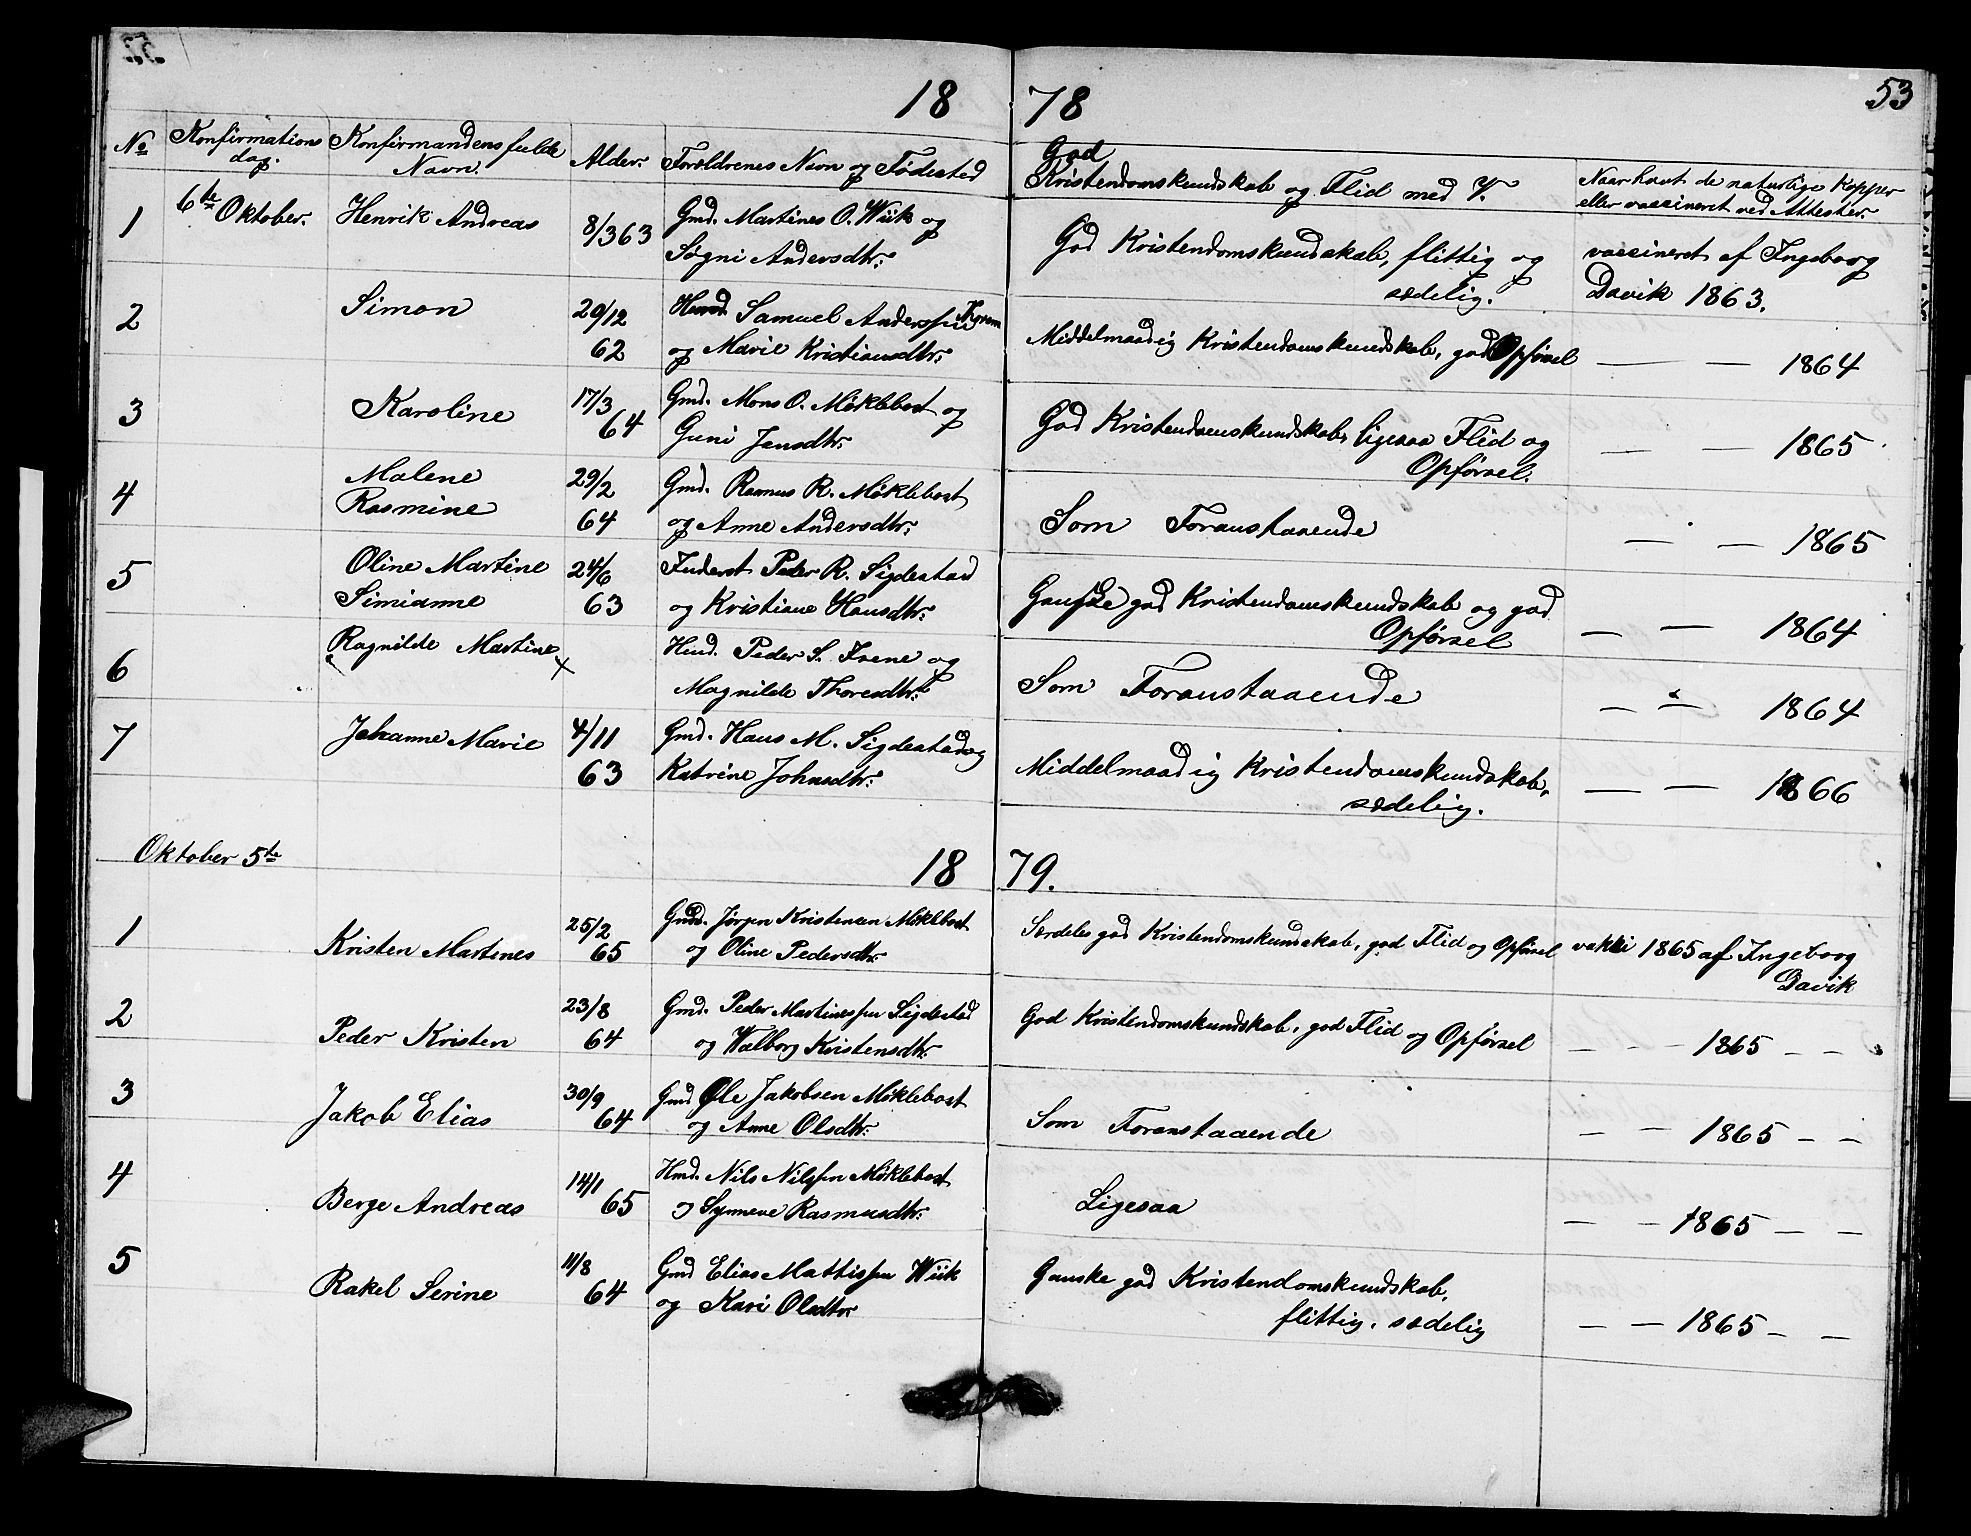 53
18 78
No Konfirmations dag. Konfirmandens fulde Navn. Alder. Forældrenes Navn og Fødested God Kristendomskundskab og Flid med V. Naar havt de naturlige Kopper eller vaccineret ved Attester.
1 6te Oktober. Henrik Andreas 8/3 63 Gmd. Martines O. Wiik og God Kristendomskundskab, flittig og vaccineret af Ingeborg
Søgni Andersdtr. sædelig. Davik 1863.
2 Simon 29/12 Huusd. Samuel Anderssen
62 og Marie Kristiansdtr. Middelmaadig Kristendomskundskab, god Opførsel — — 1864
3 Karoline 17/3 Gmd. Mons O. Møklebost og God Kristendomskundskab, ligesaa Flid og
64 Guni Jensdtr. Opførsel. — — 1865
4 Malene 29/2 Gmd. Rasmus R. Møklebost
Rasmine 64 og Anne Andersdtr. Som Foranstaaende — — 1865
5 Oline Martine 24/6 Inderst Peder R. Sigdestad Ganske god Kristendomskundskab og god
Simianne 63 og Kristiane Hansdtr. Opførsel — — 1864
6 Ragnilde Martine x Huusd. Peder S. Isene og
Magnilde Thoresdtr. Som Foranstaaende — — 1864
7 Johanne Marie 4/11 Gmd. Hans M. Sigdestad og Middelmaadig Kristendomskundskab,
63 Katrine Johnsdtr. sædelig. — — 1866
Oktober 5te 18 79.
1 Kristen Martines 25/2 Gmd. Jørgen Kristensen Møklebost Særdeles god Kristendomskundskab, god Flid og Opførsel vakki 1865 af Ingeborg
65 og Oline Pedersdtr. Davik
2 Peder Kristen 23/8 Gmd. Peder Martinessen Sigdestad God Kristendomskundskab, god Flid og Opførsel
64 og Walborg Kristensdtr. — — — 1865 — —
3 Jakob Elias 30/9 Gmd Ole Jakobsen Møklebost
64 og Anne Olsdtr. Som Foranstaaende — — 1865 — —
4 Berge Andreas 14/1 Hmd. Nils Nilssen Møklebost
65 og Synneve Rasmusdtr. Ligesaa — — 1865 — —
5 Rakel Serine 11/8 Gmd Elias Mattissen Wiik Ganske god Kristendomskundskab,
64 og Kari Olsdtr. flittig, sædelig — — 1865 — —